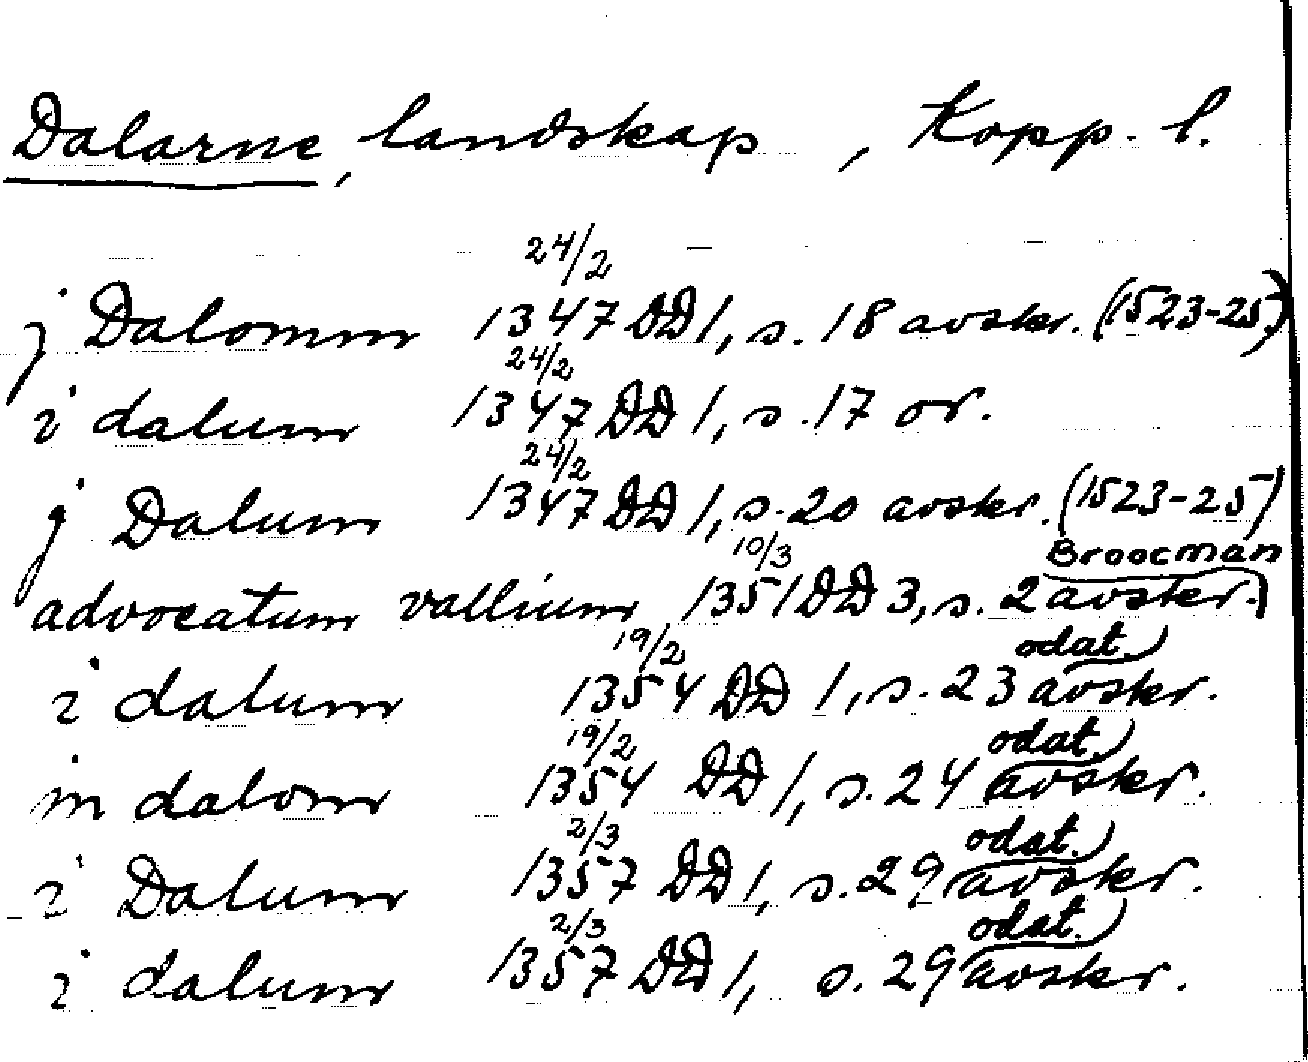 Dalarne, landskap, Kopp. l.
24/2
j Dalomm 1347 DD 1, s. 18 avskr. (1523-25)
24/2
i dalum 1347 DD 1, s. 17 or.
24/2
j Dalum 1347 DD 1, s. 20 avskr. (1523-25)
10/3 Broocman
advocatum vallium 1351 DD 3, s. 2 avskr.)
19/2 odat.)
i dalum 1354 DD 1, s. 23 avskr.
19/2 odat.)
in dalom 1354 DD 1, s. 24 avskr.
2/3 odat.)
i Dalum 1357 DD 1, s. 29 avskr.
2/3 odat.)
i dalum 1357 DD 1, s. 29 avskr.